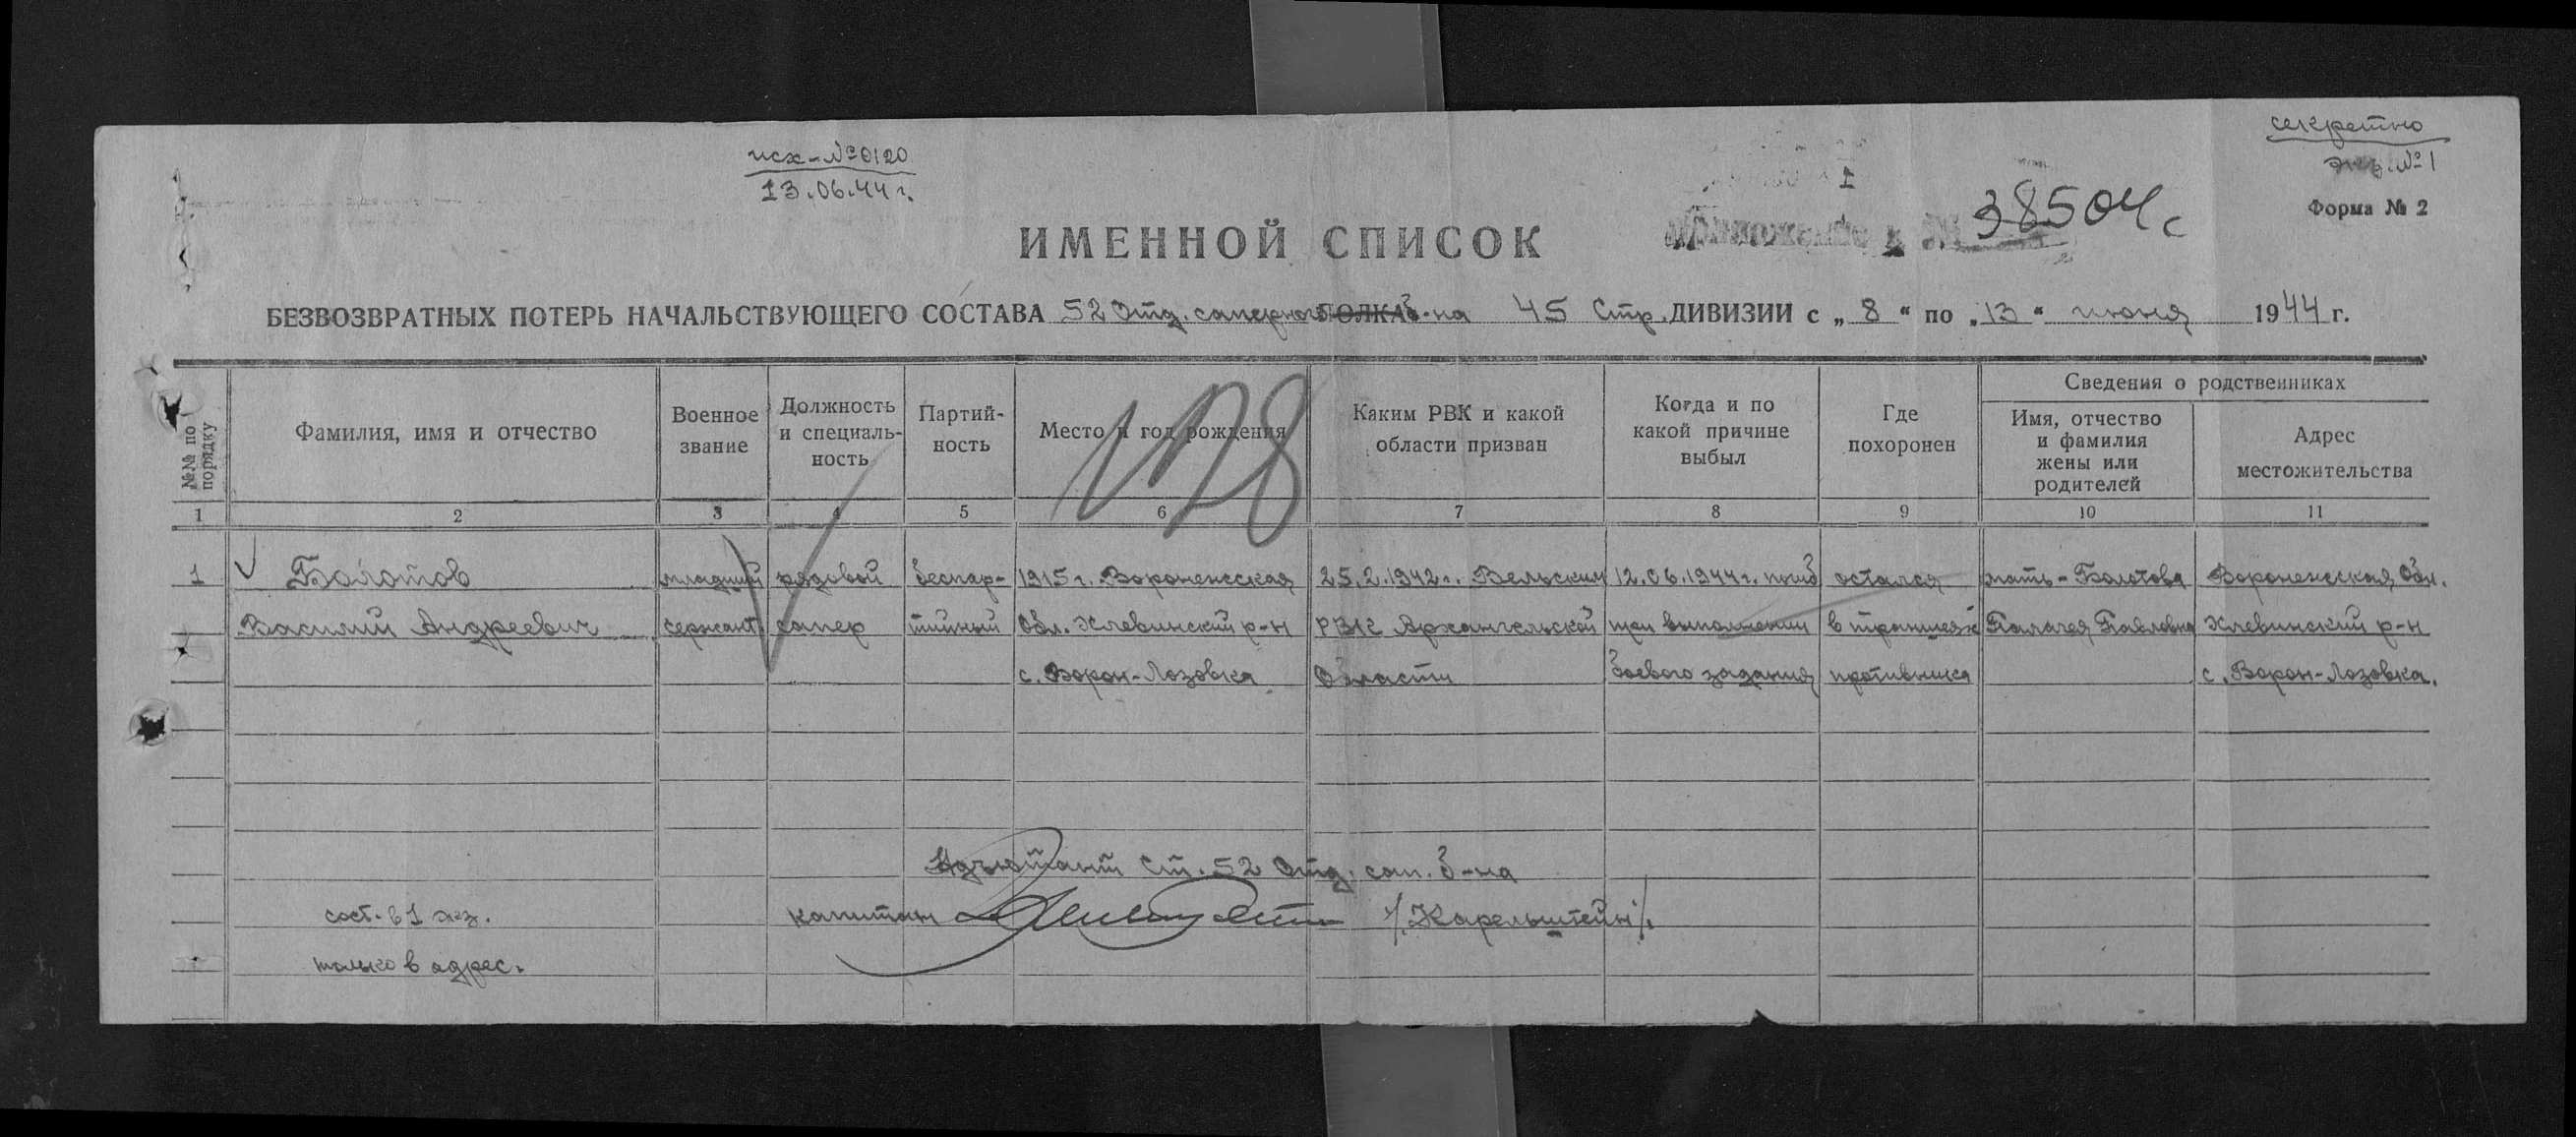 секретно
экз. №1
исх-№0120
13.06.44 г.
Форма № 2
38504с
ИМЕННОЙ СПИСОК
БЕЗВОЗВРАТНЫХ ПОТЕРЬ НАЧАЛЬСТВУЮЩЕГО СОСТАВА 52 Отд. саперного ПОЛКА б-на 45 Стр. ДИВИЗИИ с „ 8 “ по „ 13 “ июня 1944 г.
№№ по порядку
Фамилия, имя и отчество
Военное звание
Должность и специаль-ность
Партий-ность
Место и год рождения
Каким РВК и какой области призван
Когда и по какой причине выбыл
Где похоронен
Сведения о родственниках
Имя, отчество и фамилия жены или родителей
Адрес местожительства
1 2 3 4 5 6 7 8 9 10 11
1 Болотов младший рядовой беспар- 1915 г. Воронежская 25.2.1942 г. Вельским 12.06.1944 г. погиб остался мать - Болотова Воронежская Обл.
Василий Андреевич сержант сапер тийный Обл. Хлевинский р-н РВК Архангельской при выполнении в траншеях Палагея Павловна Хлевинский р-н
с. Ворон-Лозовка Области боевого задания противника с. Ворон-Лозовка.
Адъютант Ст. 52 Отд. сап. б-на
сост. в 1 экз. капитан /.Карельштейн/.
только в адрес.